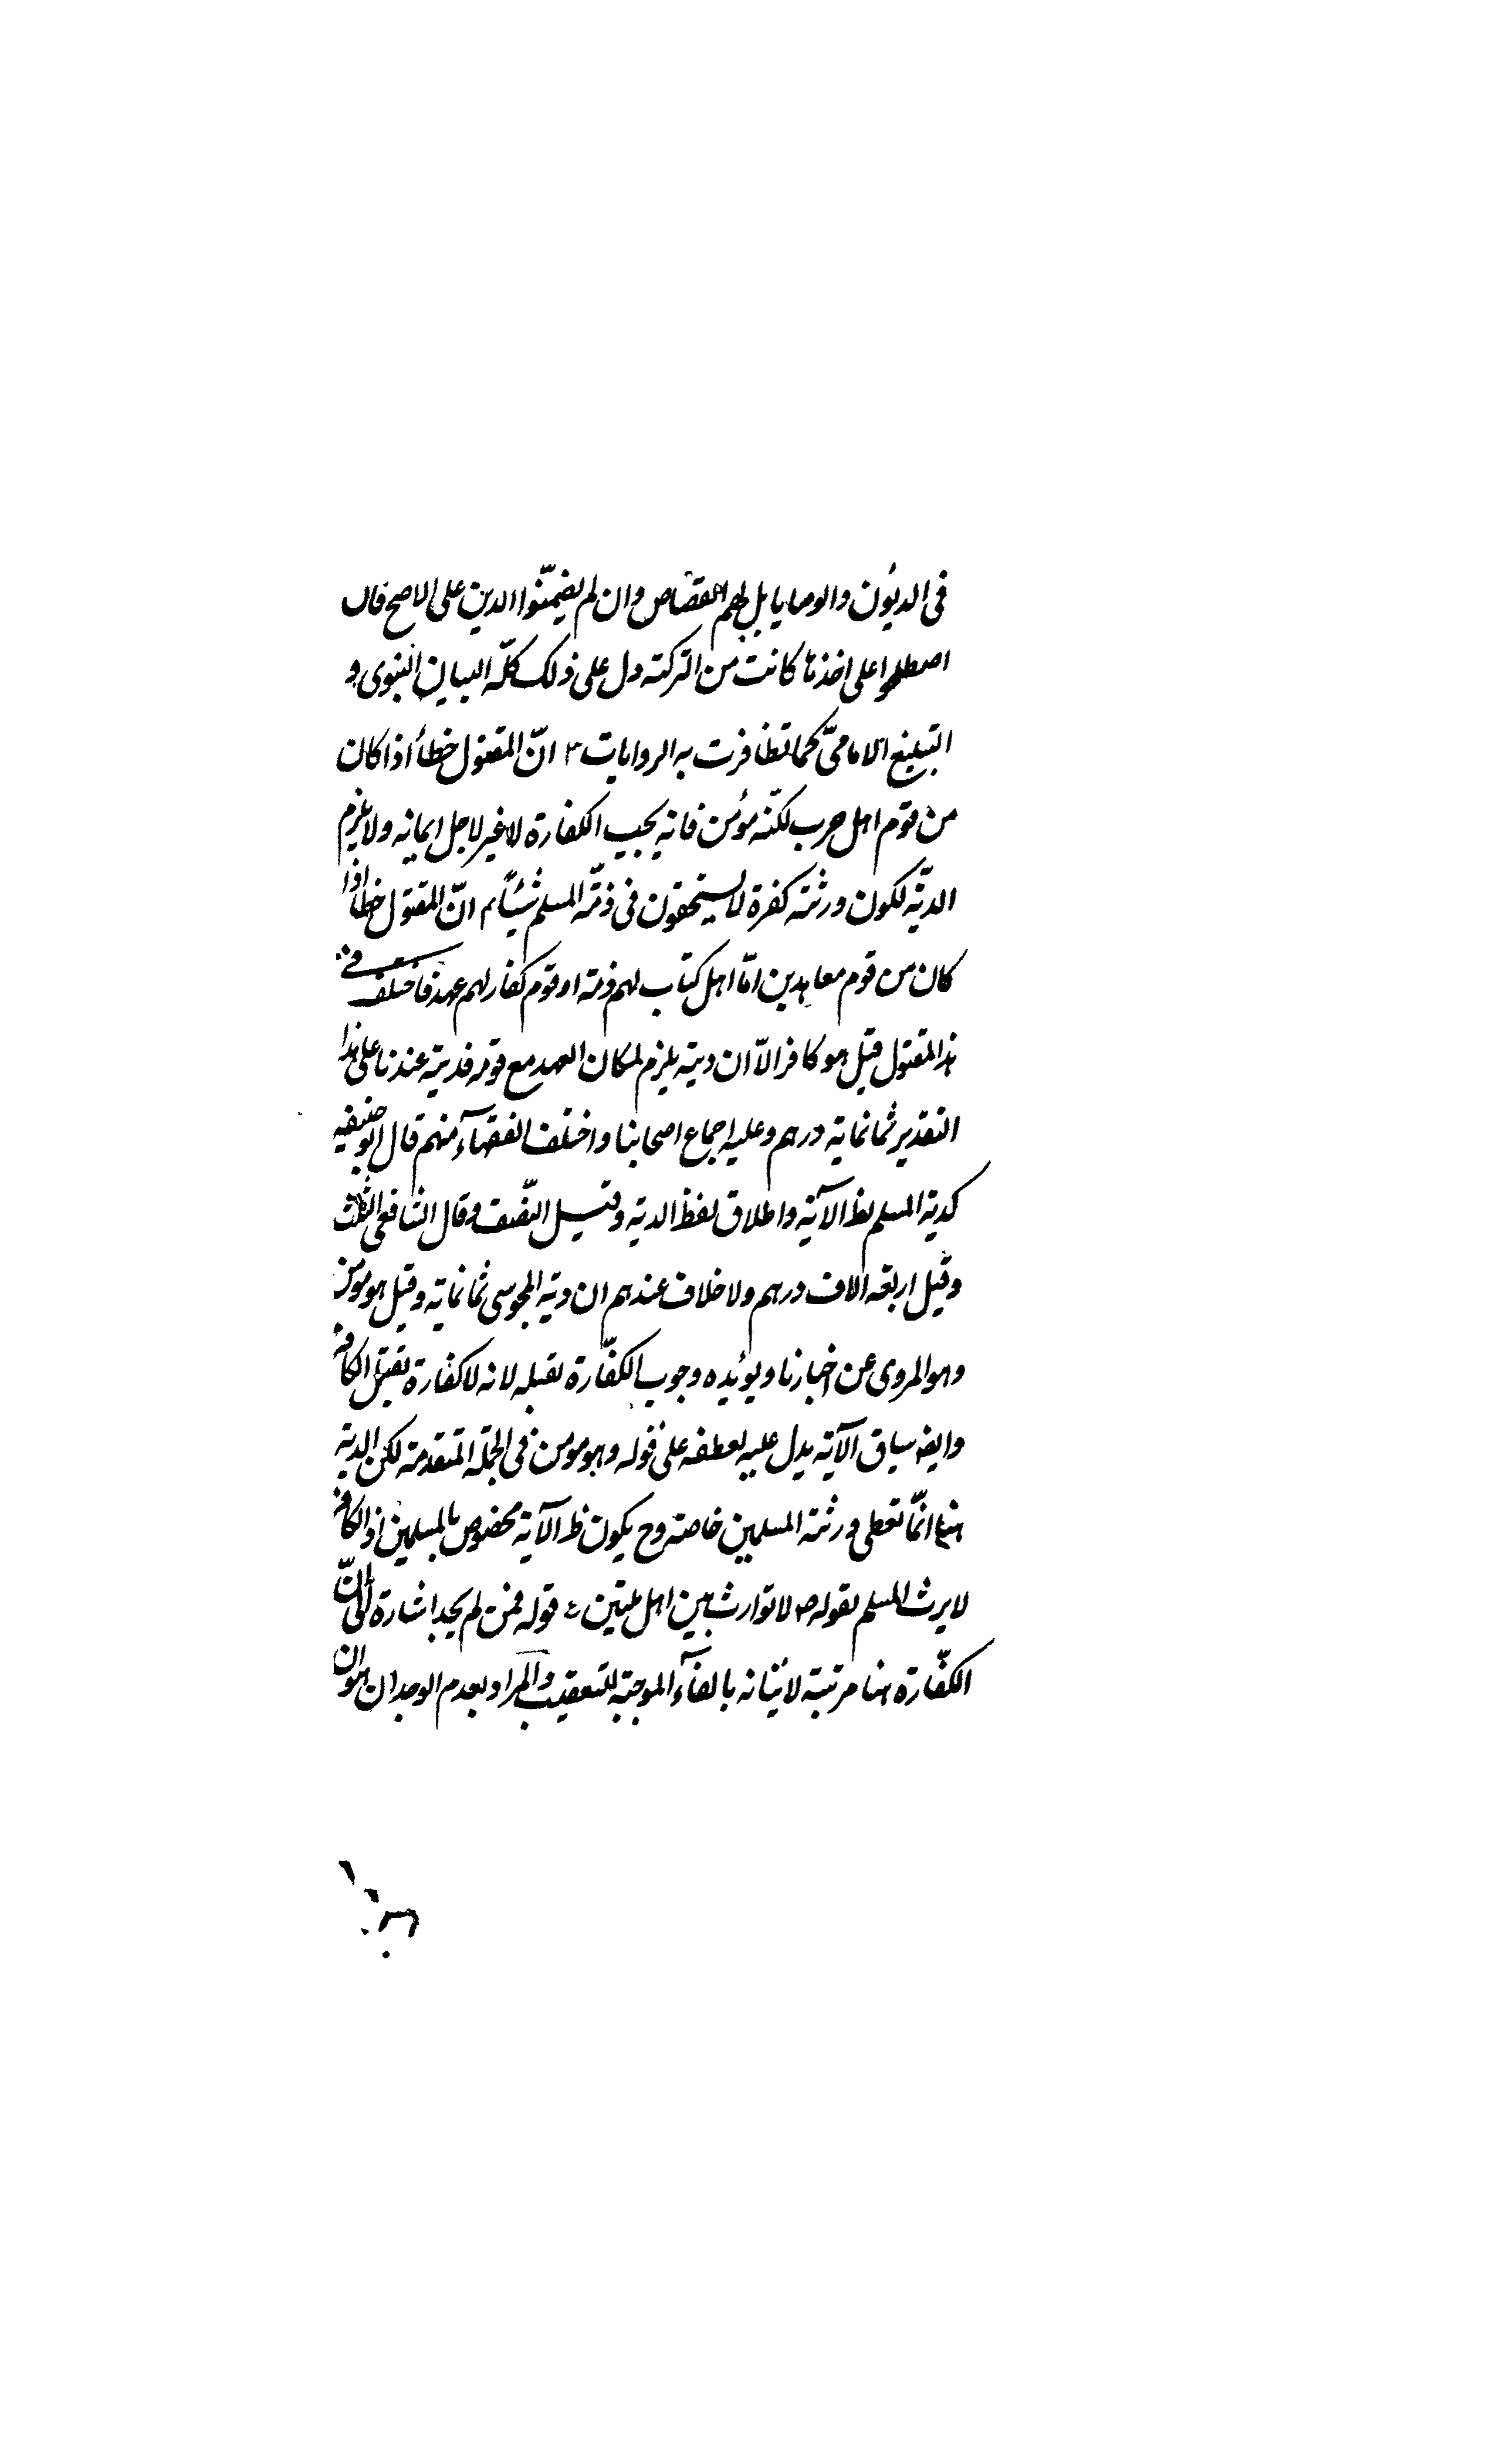 فى الديون والوصايا بل لهم القصاص وان لم يضمنوا الدين على الاصح فان
اصطلحوا على اخذها كانت من التركة دل على ذلك كلّه البيان النبوى و
التبليغ الامامىّ كما تظافرت به الروايات ٣ انّ المقتول خطأ اذا كان
من قوم اهل حرب لكنّه مؤمن فانه يجب الكفارة لا غير لاجل ايمانه ولا يلزم
الديّة لكون ورثته كفرة لا يستحقون فى ذمّة المسلم شيئاً ٤ انّ المقتول خطأ اذا
كان من قوم معاهدين امّا اهل كتاب لهم ذمة او قوم كفار لهم عهد فاختلف فى
هذا المقتول قيل هو كافر الاّ ان ديته يلزم لمكان العهد مع قومه فديته عندنا على هذا
التقدير ثمانماية درهم وعليه اجماع اصحابنا واختلف الفقهآء منهم قال ابو حنيفه
كدية المسلم لظ الآية واطلاق لفظ الدية وقيل النّصف وقال الشافعى الثلث
وقيل اربعه الاف درهم ولا خلاف عندهم ان دية المجوسى ثمانماية وقيل هو مومن
وهو المروى عن اخبارنا ويؤيده وجوب الكفّارة بقتله لانه لا كفارة بقتل الكافر
وايضا سياق الآية يدل عليه لعطفه على قوله وهو مومن فى الجملة المتقدمة لكن الدية
هنا انّما تعطى ورثته المسلمين خاصة وح يكون ظ الآية مخصوص بالمسلمين اذ الكافر
لا يرث المسلم لقوله ص لا توارث بين اهل ملتين ٥ قوله فمن لم يجد اشارة الى انّ
الكفّارة هنا مرتبة لاتيانه بالفآء الموجبة للتعقيب والمراد بعدم الوجدان هو ان